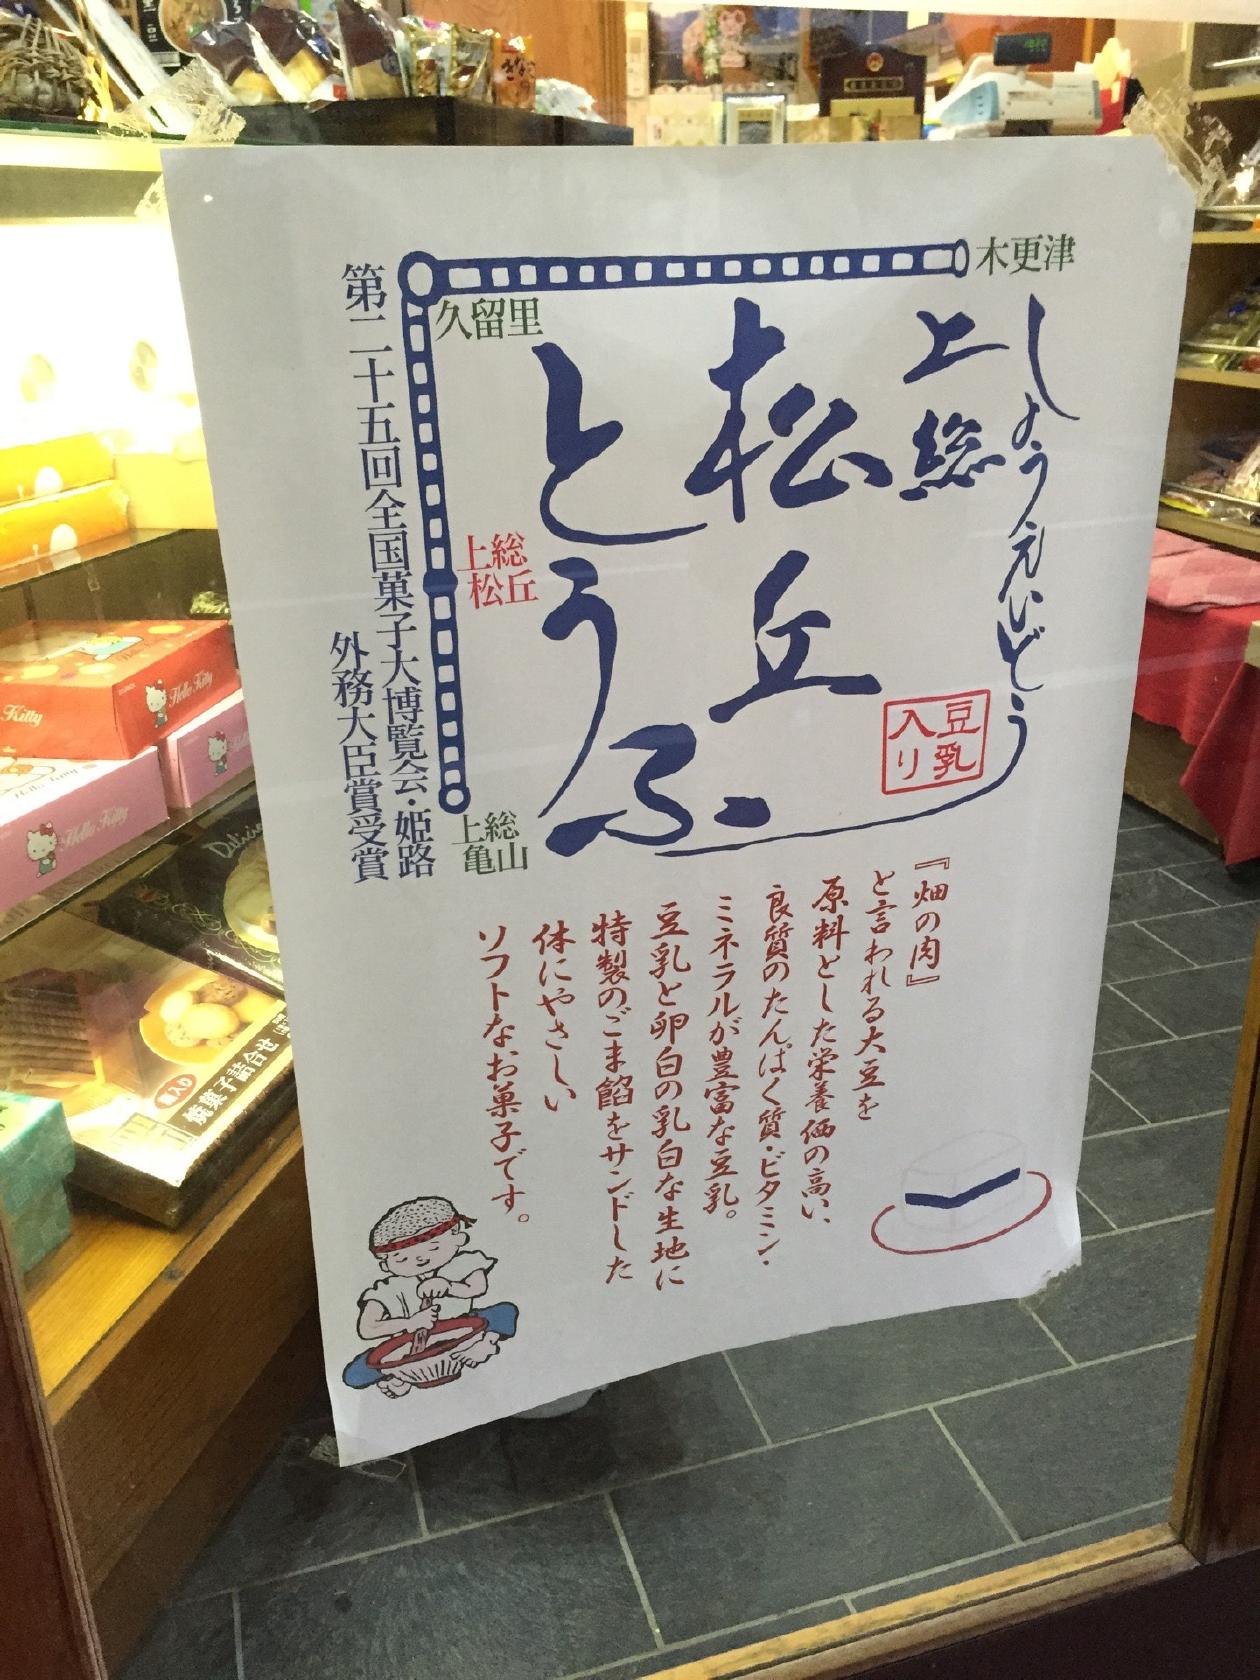 木更津
久留里
上総
松丘
上総
亀山
しょうえいどう
上総
松丘
とうふ
豆乳
入り
第二十五回全国菓子大博覧会・姫路
外務大臣賞受賞
『畑の肉』
と言われる大豆を
原料とした栄養価の高い、
良質のたんぱく質・ビタミン・
ミネラルが豊富な豆乳。
豆乳と卵白の乳白な生地に
特製のごま餡をサンドした
体にやさしい
ソフトなお菓子です。
Hello Kitty
Kitty
Hello Kitty
焼菓子詰合せ